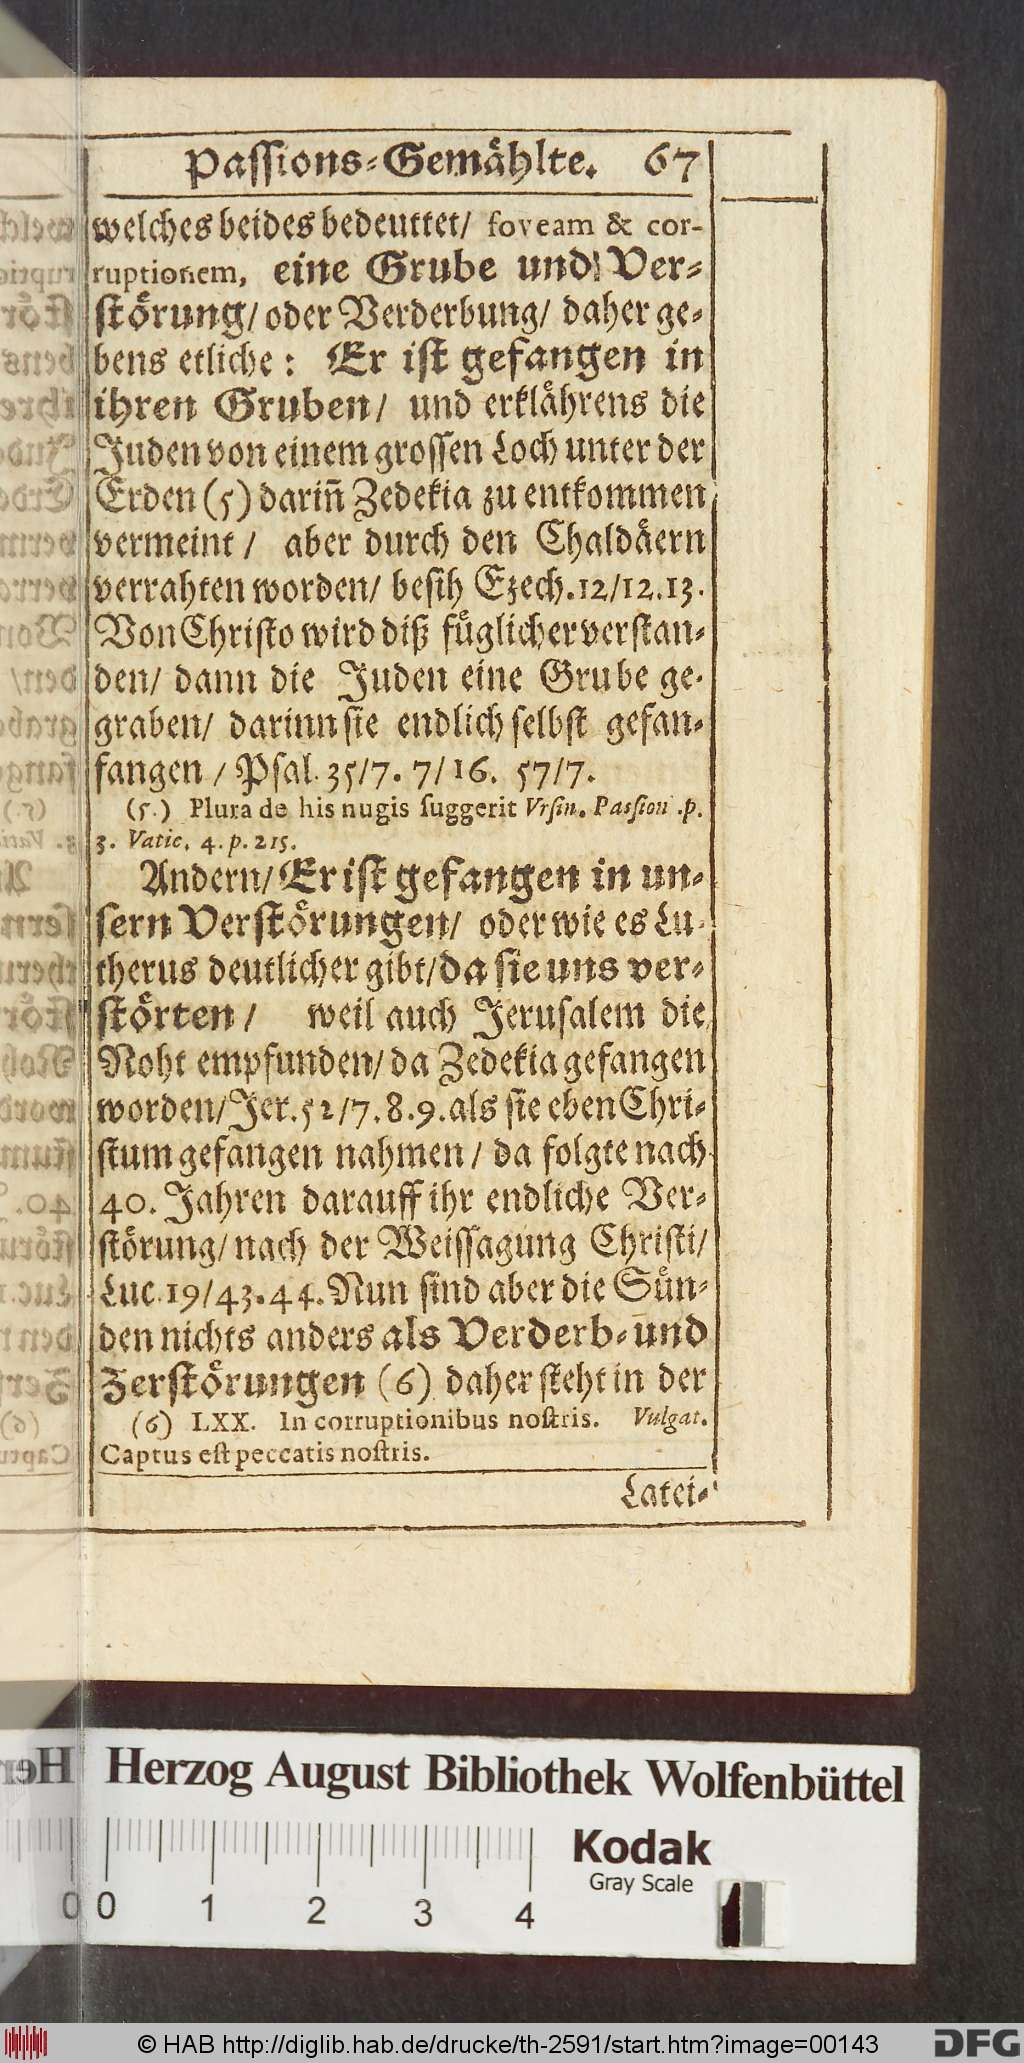 Passions-Gemählte. 67
welches beides bedeuttet/ foveam & cor-
ruptionem, eine Grube und Ver-
störung/ oder Verderbung/ daher ge-
bens etliche: Er ist gefangen in
ihren Gruben/ und erklährens die
Juden von einem grossen Loch unter der
Erden (5) dariñ Zedekia zu entkommen
vermeint/ aber durch den Chaldäern
verrahten worden/ besih Ezech. 12/12. 13.
Von Christo wird diß füglicher verstan-
den/ dann die Juden eine Grube ge-
graben/ darinn sie endlich selbst gefan-
fangen/ Psal. 35/7. 7/16. 57/7.
(5.) Plura de his nugis suggerit Vrsin. Passion. p.
3. Vatic. 4. p. 215.
Andern/ Er ist gefangen in un-
sern Verstörungen/ oder wie es Lu-
therus deutlicher gibt/ da sie uns ver-
störten/ weil auch Jerusalem die
Noht empfunden/ da Zedekia gefangen
worden/ Jer. 52/7. 8. 9. als sie eben Chri-
stum gefangen nahmen/ da folgte nach
40. Jahren darauff ihr endliche Ver-
störung/ nach der Weissagung Christi/
Luc. 19/43. 44. Nun sind aber die Sün-
den nichts anders als Verderb- und
Zerstörungen (6) daher steht in der
(6) LXX. In corruptionibus nostris. Vulgat.
Captus est peccatis nostris.
Latei-
Herzog August Bibliothek Wolfenbüttel
Kodak
Gray Scale
0 0 1 2 3 4
© HAB http://diglib.hab.de/drucke/th-2591/start.htm?image=00143
DFG